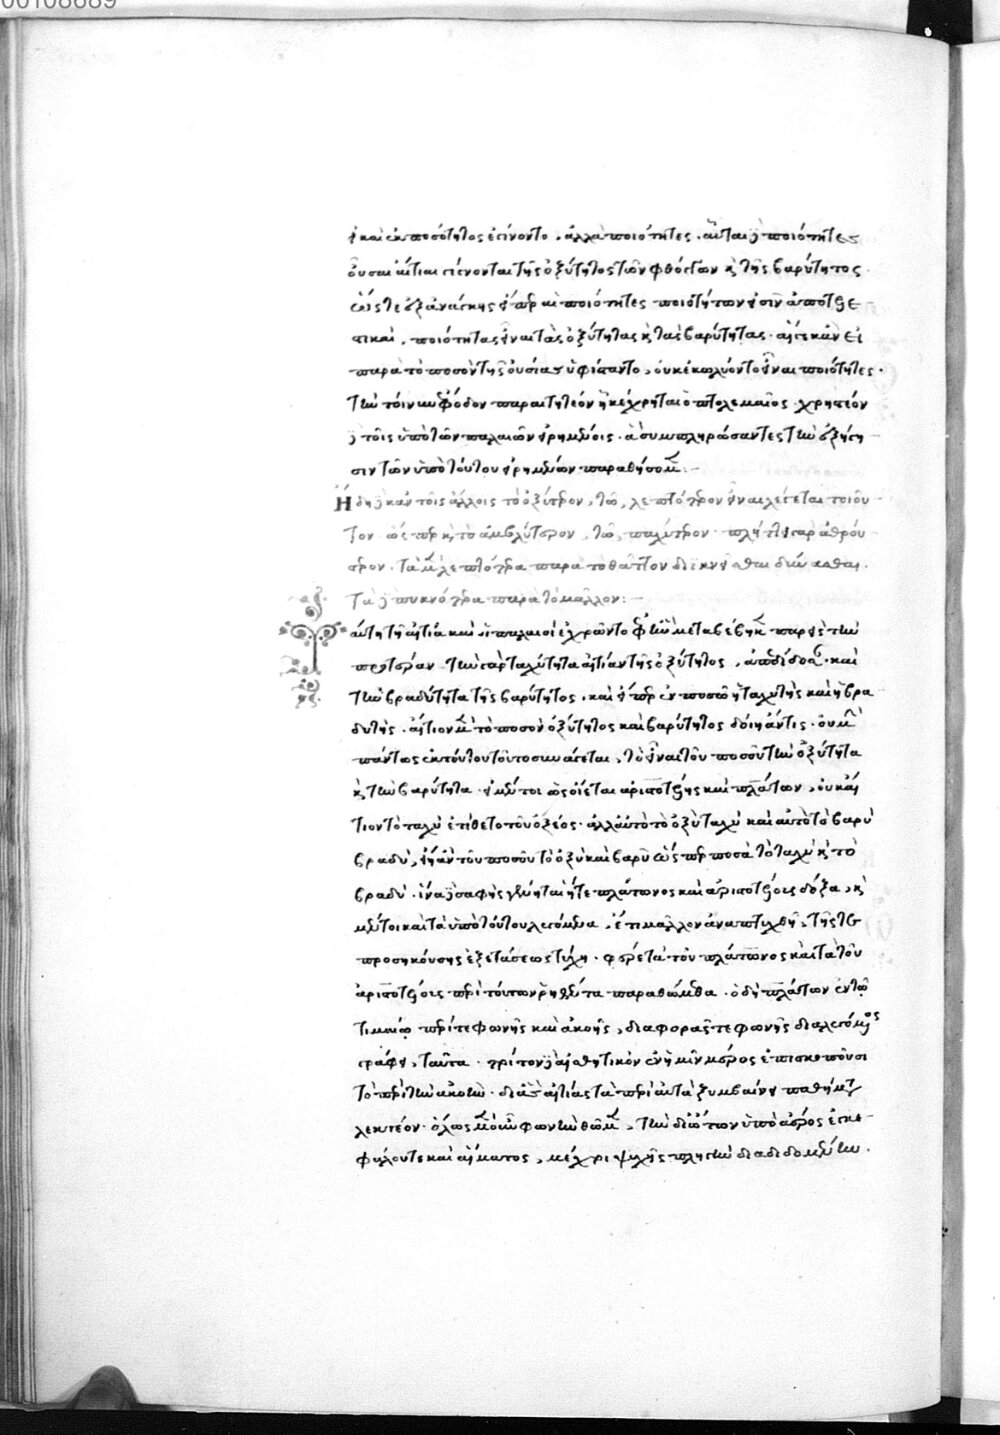 00108689
ἢ καὶ ἐκ ποσότητος ἐγίνοντο, ἀλλὰ ποιότητες. αὗται δὲ ποιότητες
οὖσαι αἴτιαι γίνονται τῆς ὀξύτητος τῶν φθόγγων καὶ τῆς βαρύτητος.
ὥστε ἐξ ἀνάγκης εἴπερ αἱ ποιότητες ποιοτήτων εἰσὶν ἀποτελε
στικαί, ποιότητας εἶναι τὰς ὀξύτητας καὶ τὰς βαρύτητας. αἵ γε κἂν εἰ
παρὰ τὸ ποσὸν τῆς οὐσίας ὑφίσταντο, οὐκ ἐκωλύοντο εἶναι ποιότητες.
τὴν τοίνυν ἔφοδον παραιτητέον ᾗ κέχρηται ὁ πτολεμαῖος. χρηστέον
δὲ τοῖς ὑπὸ τῶν παλαιῶν εἰρημένοις. ἃ συμπληρώσαντες τὴν ἐξήγη
σιν τῶν ὑπὸ τούτου εἰρημένων παραθήσομεν:
Ἤδη δὲ κἀν τοῖς ἄλλοις τὸ ὀξύτερον, τῷ λεπτότερον εἶναι λέγεται τοιοῦ
τον ὥσπερ καὶ τὸ ἀμβλύτερον, τῷ παχύτερον. πλήττει γὰρ ἀθρού
στερον. τὰ μὲν λεπτότερα παρὰ τὸ θᾶττον διικνεῖσθαι δύνασθαι.
τὰ δὲ πυκνότερα παρὰ τὸ μᾶλλον:
Ταύτῃ τῇ αἰτίᾳ καὶ οἱ παλαιοὶ ἐχρῶντο ἐφ' ἣν μεταβέβηκεν παρεὶς τὴν
προτέραν. τὴν γὰρ ταχύτητα αἰτίαν τῆς ὀξύτητος, ἀπεδίδοσαν. καὶ
τὴν βραδύτητα τῆς βαρύτητος. καὶ εἴπερ ἐν ποσῷ ἡ ταχυτὴς καὶ ἡ βρα
δυτής. αἴτιον μὲν τὸ ποσὸν ὀξύτητος καὶ βαρύτητος δοίη ἄν τις. οὐ μὴν
πάντως ἐκ τούτου τοῦτο συνάγεται, τὸ εἶναι τοῦ ποσοῦ τὴν ὀξύτητα
καὶ τὴν βαρύτητα. εἰ μέντοι ὡς οἴεται ἀριστοτέλης καὶ πλάτων, οὐκ αἴ
τιον τὸ ταχὺ ἐτίθετο τοῦ ὀξέος. ἀλλ' αὐτὸ τὸ ὀξὺ ταχὺ καὶ αὐτὸ τὸ βαρὺ
βραδύ, εἴη ἂν τοῦ ποσοῦ τὸ ὀξὺ καὶ βαρὺ ὥσπερ ποσὰ τὸ ταχὺ καὶ τὸ
βραδύ. ἵνα δὲ σαφὴς γένηται ἥ τε πλάτωνος καὶ ἀριστοτέλους δόξα, καὶ
μέντοι καὶ τὰ ὑπὸ τούτου λεγόμενα, ἔτι μᾶλλον ἀναπτυχθῇ, τῆς τε
προσηκούσης ἐξετάσεως τύχῃ. φέρε τὰ τοῦ πλάτωνος καὶ τὰ τοῦ
ἀριστοτέλους περὶ τούτων ῥηθέντα παραθώμεθα. ὁ δὴ πλάτων ἐν τῷ
τιμαίῳ περί τε φωνῆς καὶ ἀκοῆς, διαφορᾶς τε φωνῆς διαλεγόμενος
γράφει ταῦτα. τρίτον δὲ αἰσθητικὸν ἐν ἡμῖν μέρος ἐπισκοποῦσι
τὸ περὶ τὴν ἀκοήν. δι' ἃς αἰτίας τὰ περὶ αὐτὰ ξυμβαίνει παθήματα
λεκτέον. ὅλως μὲν οὖν φωνὴν θῶμεν, τὴν δι' ὤτων ὑπὸ ἀέρος ἐγκε
φάλου τε καὶ αἵματος, μέχρι ψυχῆς πληγὴν διαδιδομένην.